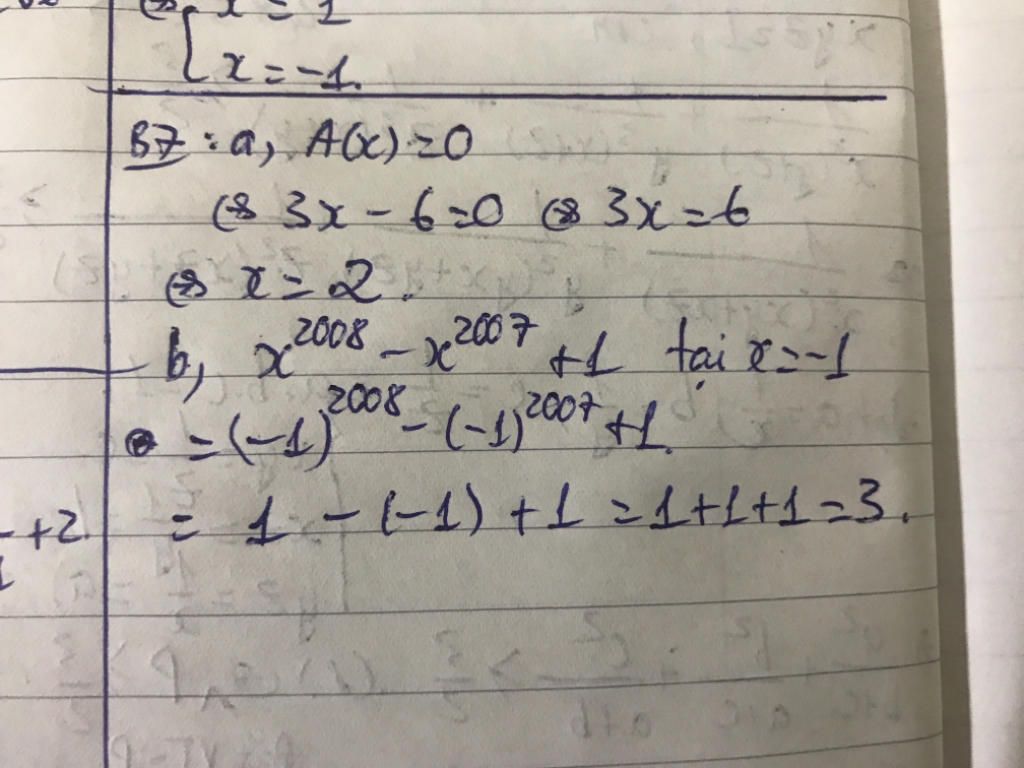 ⇔ x = 1
x = -1.
B7 : a, A(x) = 0
⇔ 3x - 6 = 0 ⇔ 3x = 6
⇔ x = 2.
b, x^2008 - x^2007 + 1 tại x = -1
= (-1)^2008 - (-1)^2007 + 1.
= 1 - (-1) + 1 = 1+1+1 = 3.
+2.